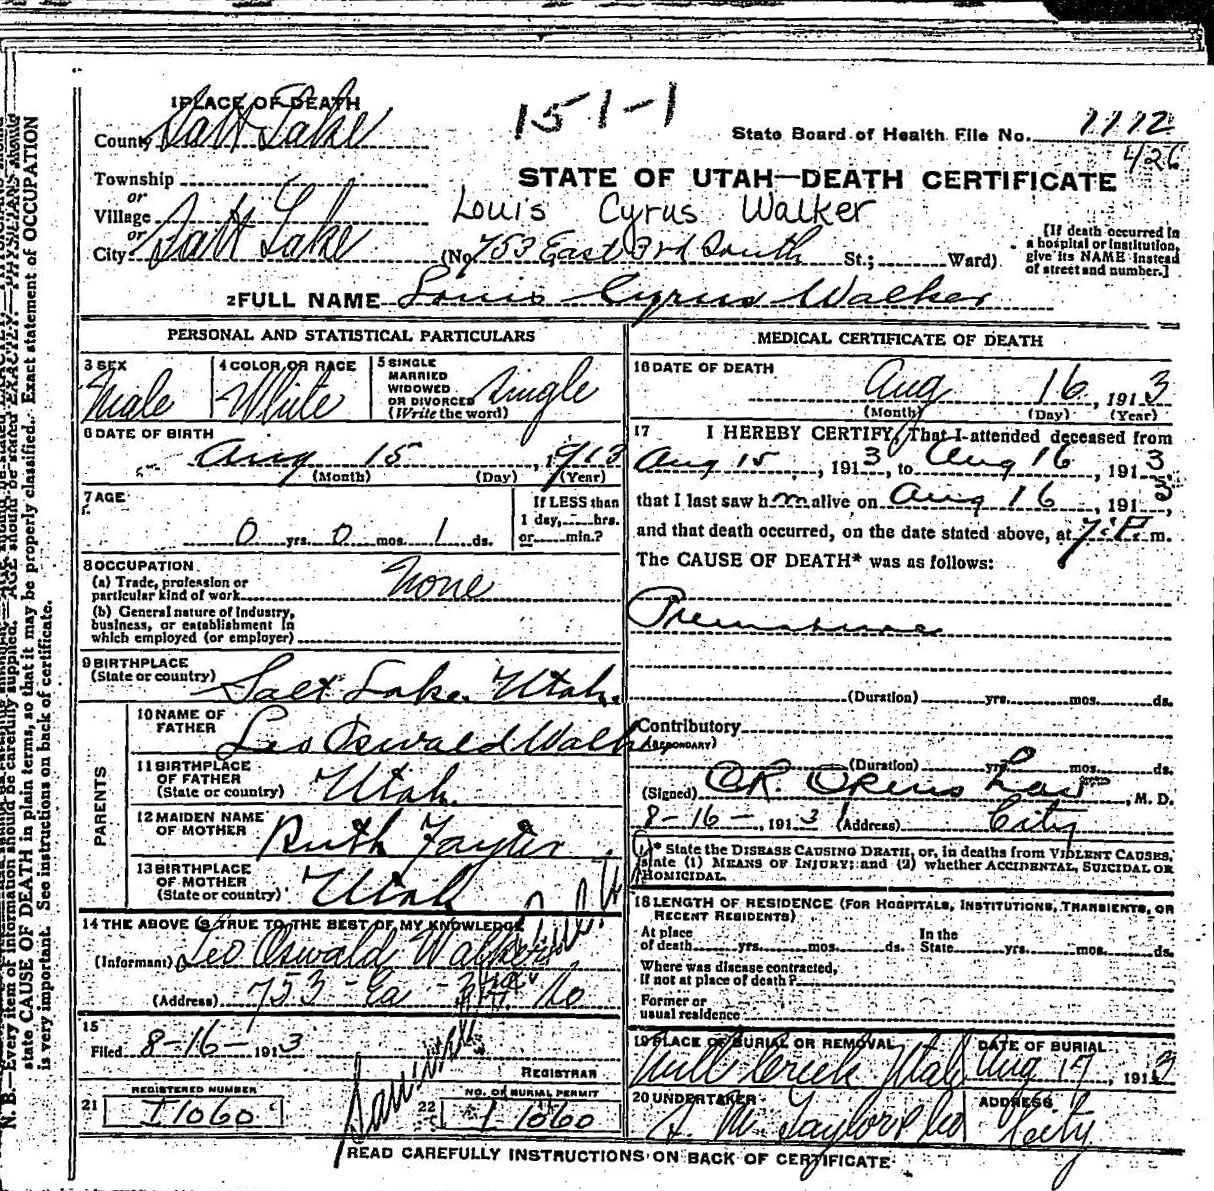 151-1
1 PLACE OF DEATH
County Salt Lake
State Board of Health File No. 1112
426
Township
or
Village
or
City Salt Lake
STATE OF UTAH—DEATH CERTIFICATE
Louis Cyrus Walker
(No. 753 East 3rd South St.; Ward)
[If death occurred in
a hospital or institution,
give its NAME instead
of street and number.]
2 FULL NAME Louis Cyrus Walker
PERSONAL AND STATISTICAL PARTICULARS
3 SEX
Male
4 COLOR OR RACE
White
5 SINGLE
MARRIED
WIDOWED
OR DIVORCED
(Write the word)
Single
6 DATE OF BIRTH
Aug 15, 1913
(Month) (Day) (Year)
7 AGE
0 yrs. 0 mos. 1 ds.
If LESS than
1 day, hrs.
or min.?
8 OCCUPATION
(a) Trade, profession or
particular kind of work None
(b) General nature of Industry,
business, or establishment in
which employed (or employer)
9 BIRTHPLACE
(State or country) Salt Lake. Utah.
PARENTS
10 NAME OF
FATHER Leo Oswald Walker
11 BIRTHPLACE
OF FATHER
(State or country) Utah.
12 MAIDEN NAME
OF MOTHER Ruth
13 BIRTHPLACE
OF MOTHER
(State or country) Utah
14 THE ABOVE IS TRUE TO THE BEST OF MY KNOWLEDGE
(Informant) Leo Oswald Walker
(Address) 753 - Ea - So
15
Filed 8-16- 1913
REGISTRAR
REGISTERED NUMBER
21 I1060
NO. OF BURIAL PERMIT
22 I 1060
MEDICAL CERTIFICATE OF DEATH
16 DATE OF DEATH
Aug 16, 1913
(Month) (Day) (Year)
17 I HEREBY CERTIFY, That I attended deceased from
Aug 15, 1913, to Aug 16, 1913.
that I last saw him alive on Aug 16, 1913,
and that death occurred, on the date stated above, at 7:P. m.
The CAUSE OF DEATH* was as follows:
Premature
(Duration) yrs. mos. ds.
Contributory
(SECONDARY)
(Duration) yrs. mos. ds.
(Signed) , M. D.
8-16-, 1913 (Address) City
* State the DISEASE CAUSING DEATH, or, in deaths from VIOLENT CAUSES,
state (1) MEANS OF INJURY; and (2) whether ACCIDENTAL, SUICIDAL OR
HOMICIDAL.
18 LENGTH OF RESIDENCE (FOR HOSPITALS, INSTITUTIONS, TRANSIENTS, OR
RECENT RESIDENTS)
At place
of death yrs. mos. ds.
In the
State yrs. mos. ds.
Where was disease contracted,
if not at place of death?
Former or
usual residence
19 PLACE OF BURIAL OR REMOVAL
Mill Creek Utah
DATE OF BURIAL
Aug 17, 1913
20 UNDERTAKER
S. M. Taylor & Co
ADDRESS
City
READ CAREFULLY INSTRUCTIONS ON BACK OF CERTIFICATE
N. B.—Every item of information should be carefully supplied. AGE should be stated EXACTLY. PHYSICIANS should
state CAUSE OF DEATH in plain terms, so that it may be properly classified. Exact statement of OCCUPATION
is very important. See instructions on back of certificate.